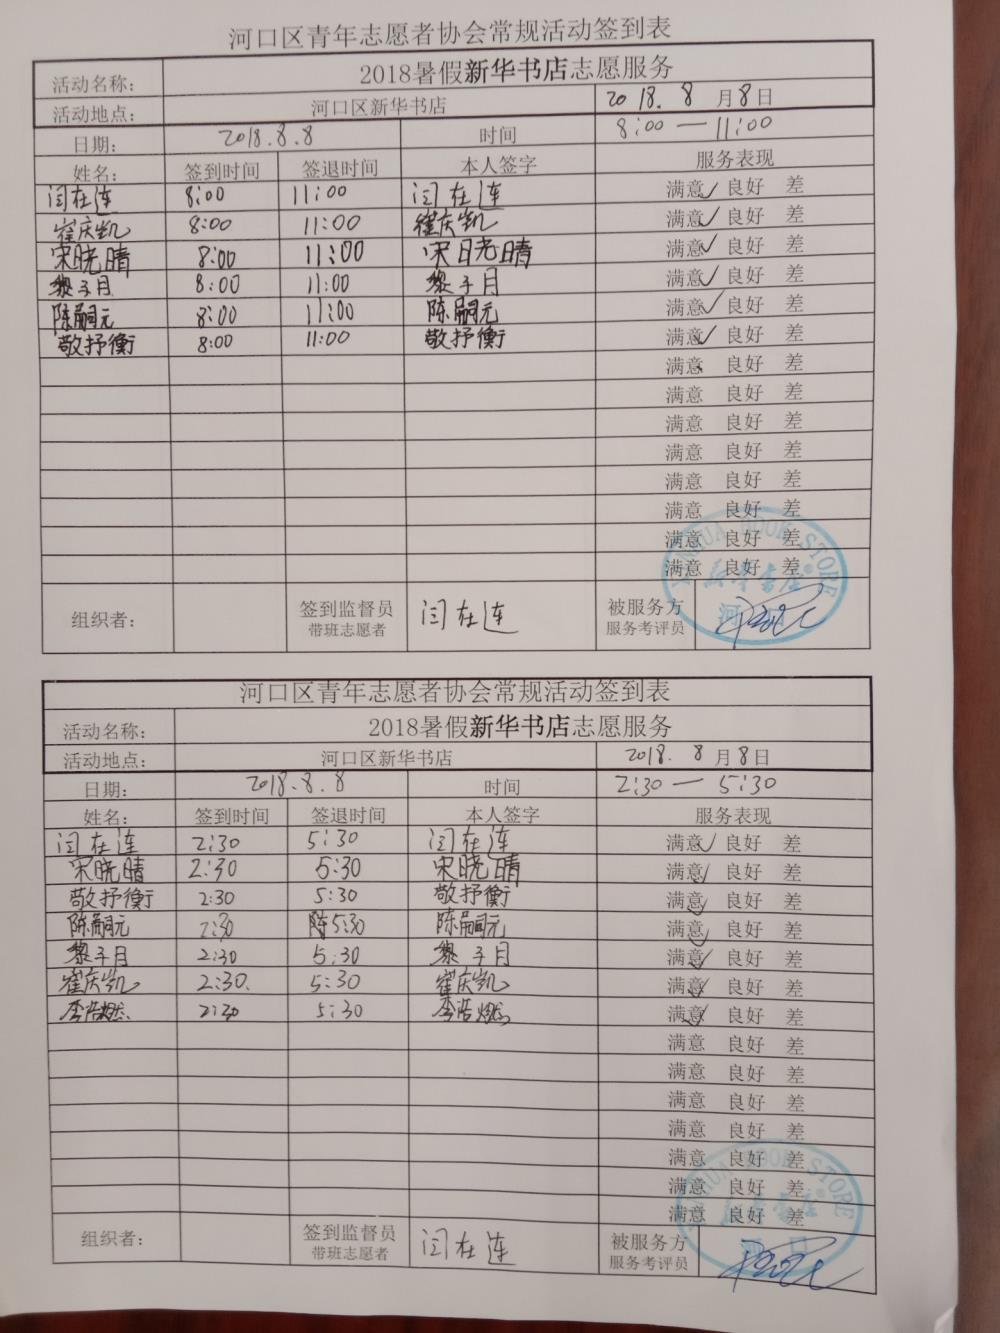 河口区青年志愿者协会常规活动签到表
活动名称: 2018暑假新华书店志愿服务
活动地点: 河口区新华书店 2018. 8 月8日
日期: 2018.8.8 时间 8:00 — 11:00
姓名: 签到时间 签退时间 本人签字 服务表现
闫在连 8:00 11:00 闫在连 满意✓ 良好 差
崔庆凯 8:00 11:00 崔庆凯 满意✓ 良好 差
宋晓晴 8:00 11:00 宋晓晴 满意✓ 良好 差
黎子月 8:00 11:00 黎子月 满意✓ 良好 差
陈嗣元 8:00 11:00 陈嗣元 满意✓ 良好 差
敬抒衡 8:00 11:00 敬抒衡 满意✓ 良好 差
满意 良好 差
满意 良好 差
满意 良好 差
满意 良好 差
满意 良好 差
满意 良好 差
满意 良好 差
满意 良好 差
XINHUA BOOK STORE
新华书店®
河口
组织者: 签到监督员 闫在连 被服务方
带班志愿者 服务考评员
河口区青年志愿者协会常规活动签到表
活动名称: 2018暑假新华书店志愿服务
活动地点: 河口区新华书店 2018. 8 月8日
日期: 2018.8.8 时间 2:30 — 5:30
姓名: 签到时间 签退时间 本人签字 服务表现
闫在连 2:30 5:30 闫在连 满意✓ 良好 差
宋晓晴 2:30 5:30 宋晓晴 满意✓ 良好 差
敬抒衡 2:30 5:30 敬抒衡 满意✓ 良好 差
陈嗣元 2:30 5:30 陈嗣元 满意✓ 良好 差
黎子月 2:30 5:30 黎子月 满意✓ 良好 差
崔庆凯 2:30. 5:30 崔庆凯 满意✓ 良好 差
李浩燃 2:30 5:30 李浩燃 满意✓ 良好 差
满意 良好 差
满意 良好 差
满意 良好 差
满意 良好 差
满意 良好 差
满意 良好 差
满意 良好 差
XINHUA BOOK STORE
新华书店®
河口
组织者: 签到监督员 闫在连 被服务方
带班志愿者 服务考评员